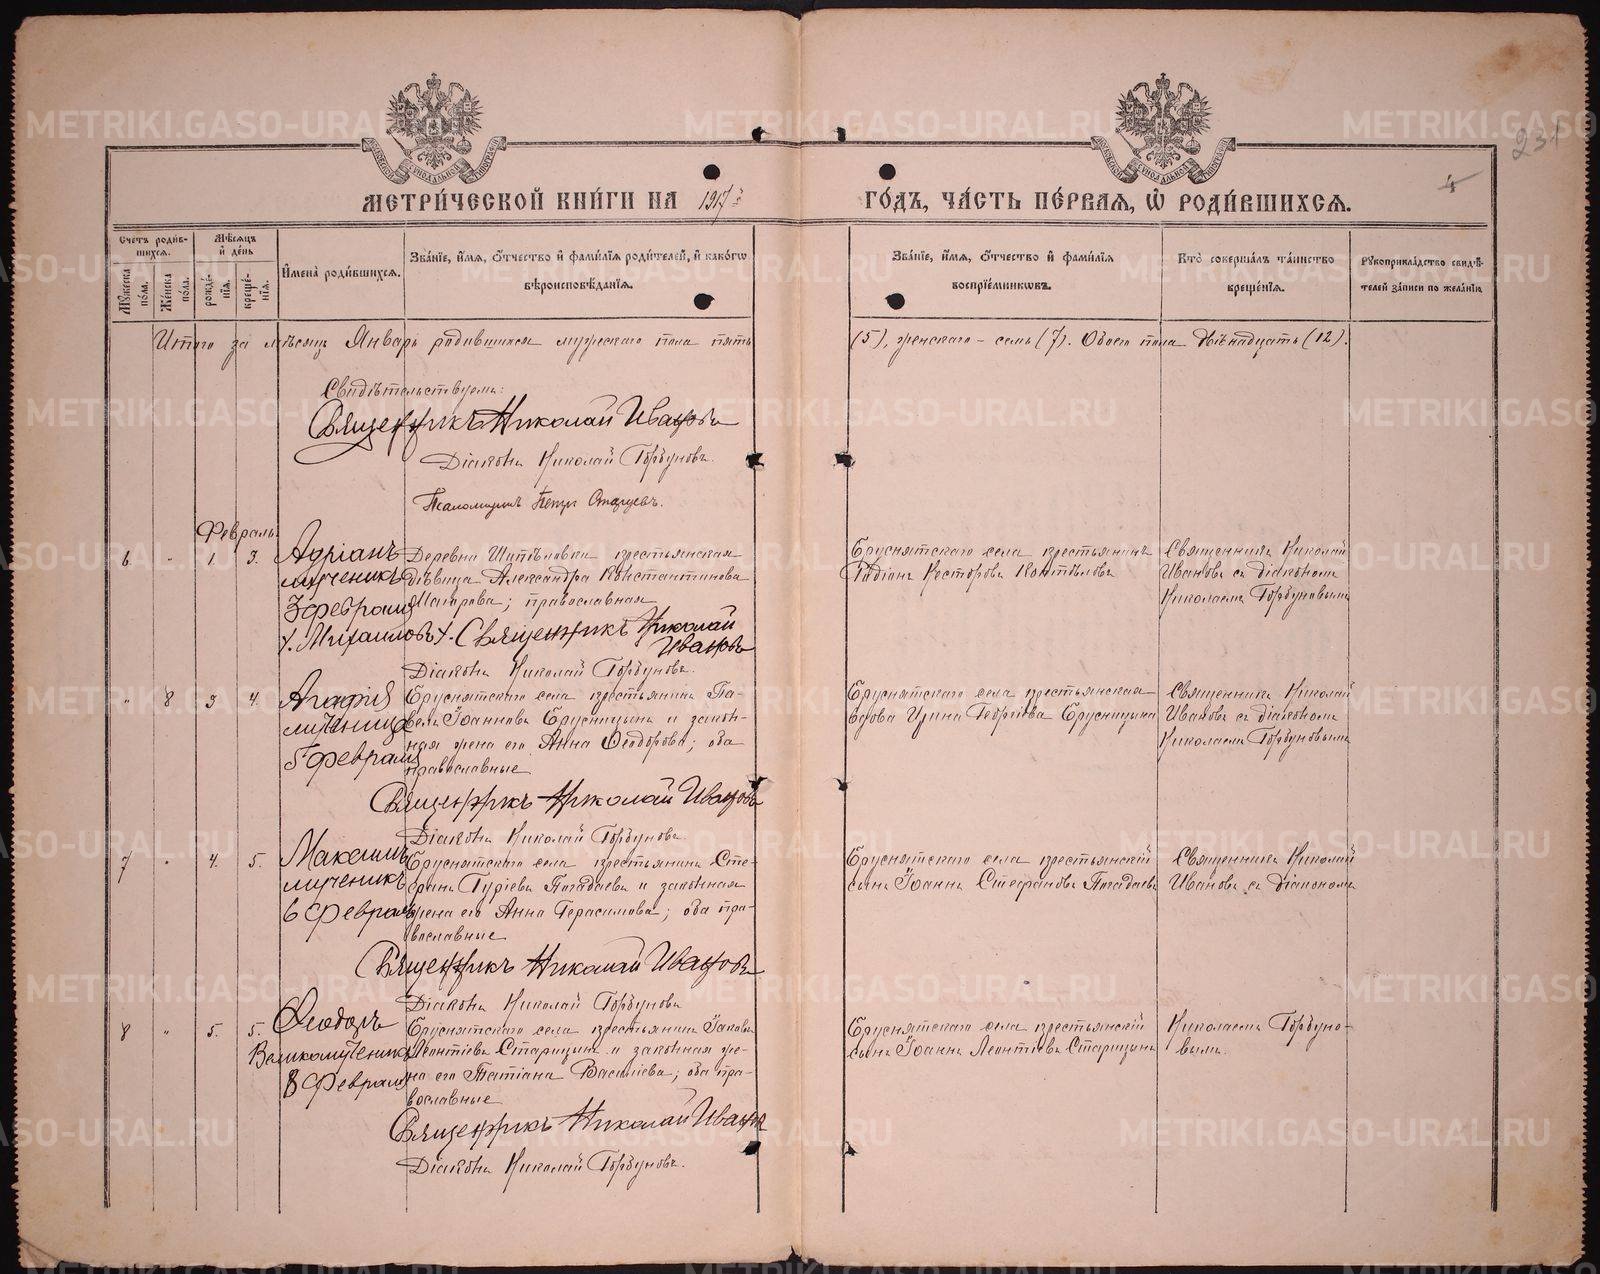 231
5
МЕТРИ́ЧЕСКОЙ КНИ́ГИ НА 1917 й ГО́ДЪ, ЧА́СТЬ ПЕ́РВАЯ, Ѿ РОДИ́ВШИХСЯ.
Счетъ роди́вшихся.
Мѣ́сяцъ и́ де́нь
Му́жеска по́ла.
Же́нска по́ла.
рожде́нія.
креще́нія.
И́мена̀ роди́вшихся.
Зва́ніе, и́мя, о́тчество и́ фами́лія роди́телей, и́ како́гѡ
вѣроисповѣ́данія.
Зва́ніе, и́мя, о́тчество и́ фами́лія
воспріе́мникѡвъ.
Кто̀ соверша́лъ та́инство
креще́нія.
Рукоприкла́дство свидѣ́-
телей за́писи по жела́нію.
Итого за мѣсяцъ Январь родившихся мужескаго пола пять
(5), женскаго - семь (7). Обоего пола двѣнадцать (12).
Свидѣтельствуемъ:
Священникъ Николай Ивановъ
Діаконъ Николай Горбуновъ.
Псаломщикъ Петръ
Февраль
6 " 1 3.
Адріанъ
мученикъ
3 февраля
У. Михаиловъ У.
Деревни крестьянская
дѣвица Александра Константинова
православная
Священникъ Николай
Ивановъ
Діаконъ Николай Горбуновъ.
Бруснятскаго села крестьянинъ
Несторовъ
Священникъ Николай
Ивановъ съ діакономъ
Николаемъ Горбуновымъ
" 8 3 4.
Агафія
мученица
5 февраля
Бруснятскаго села крестьянинъ Па-
велъ Іоанновъ Брусницынъ и закон-
ная жена его Анна Ѳеодорова; оба
православные
Священникъ Николай Ивановъ
Діаконъ Николай Горбуновъ
Бруснятскаго села крестьянская
вдова Ирина Георгіева Брусницына
Священникъ Николай
Ивановъ съ діакономъ
Николаемъ Горбуновымъ
7 " 4. 5.
Максимъ
мученикъ
6 февраля
Бруснятскаго села крестьянинъ Сте-
фанъ Гуріевъ Погадаевъ и законная
жена его Анна Герасимова; оба пра-
вославные
Священникъ Николай Ивановъ
Діаконъ Николай Горбуновъ
Бруснятскаго села крестьянскій
сынъ Іоаннъ Стефановъ Погадаевъ
Священникъ Николай
Ивановъ съ діакономъ
8 " 5. 5.
Ѳеодоръ
Великомученикъ
8 февраля
Бруснятскаго села крестьянинъ Іаковъ
Леонтіевъ Старицынъ и законная же-
на его Татіана Васильева; оба пра-
вославные
Священникъ Николай Ивановъ
Діаконъ Николай Горбуновъ.
Бруснятскаго села крестьянскій
сынъ Іоаннъ Леонтіевъ Старицынъ
Николаемъ Горбуно-
вымъ.
METRIKI.GASO-URAL.RU